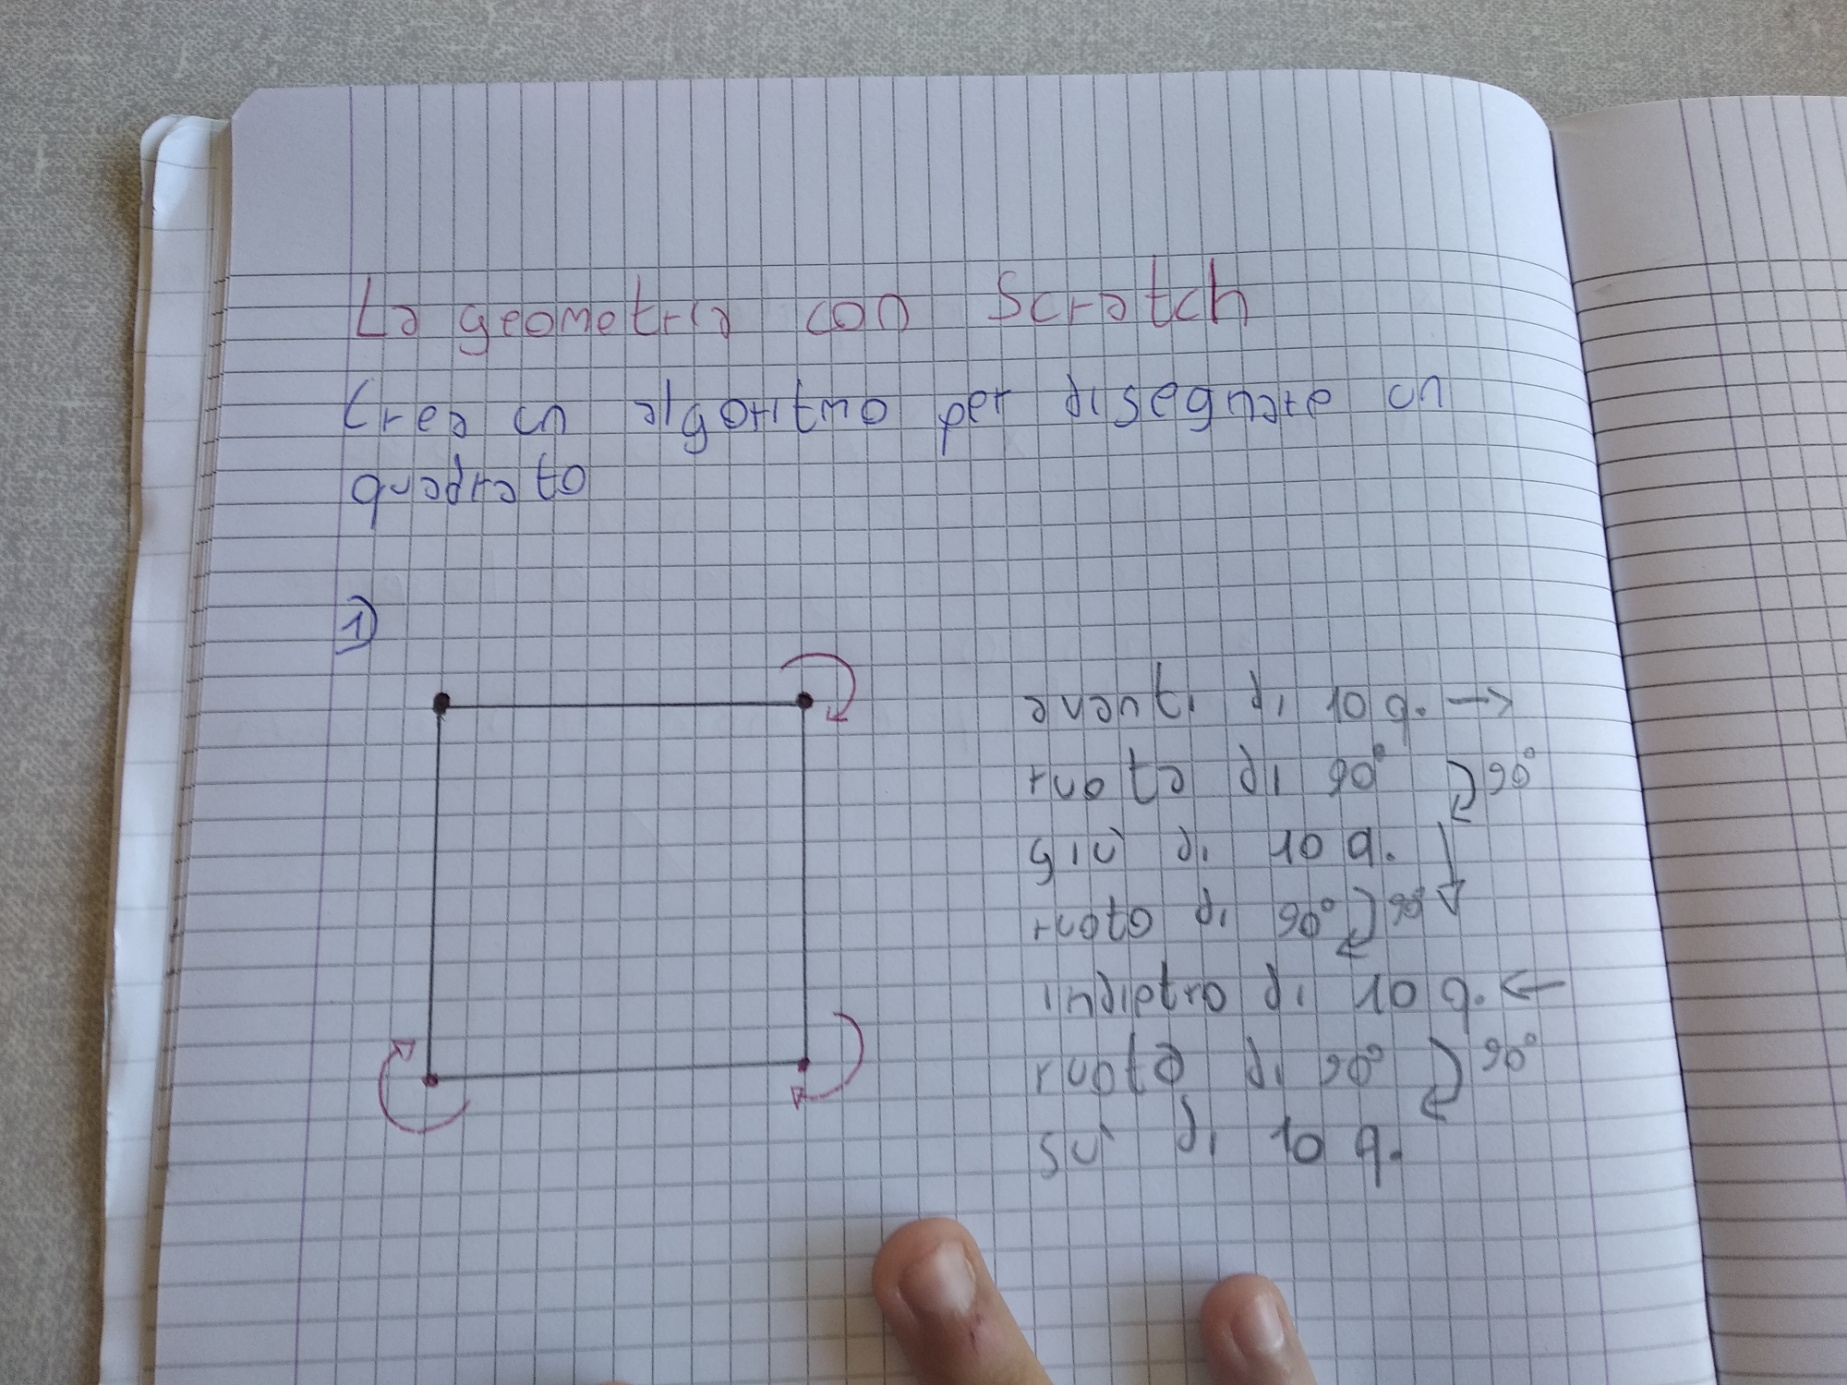 La geometria con Scratch
Crea un algoritmo per disegnare un
quadrato
1)
avanti di 10 q. →
ruota di 90° 90°
giù di 10 q. ↓
ruoto di 90° 90°
indietro di 10 q. ←
ruota di 90° 90°
sù di 10 q.